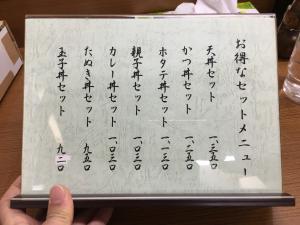 お得なセットメニュー
天丼セット 一、三五〇
かつ丼セット 一、二五〇
ホタテ丼セット 一、一三〇
親子丼セット 一、〇三〇
カレー丼セット 一、〇三〇
たぬき丼セット 九五〇
玉子丼セット 九二〇